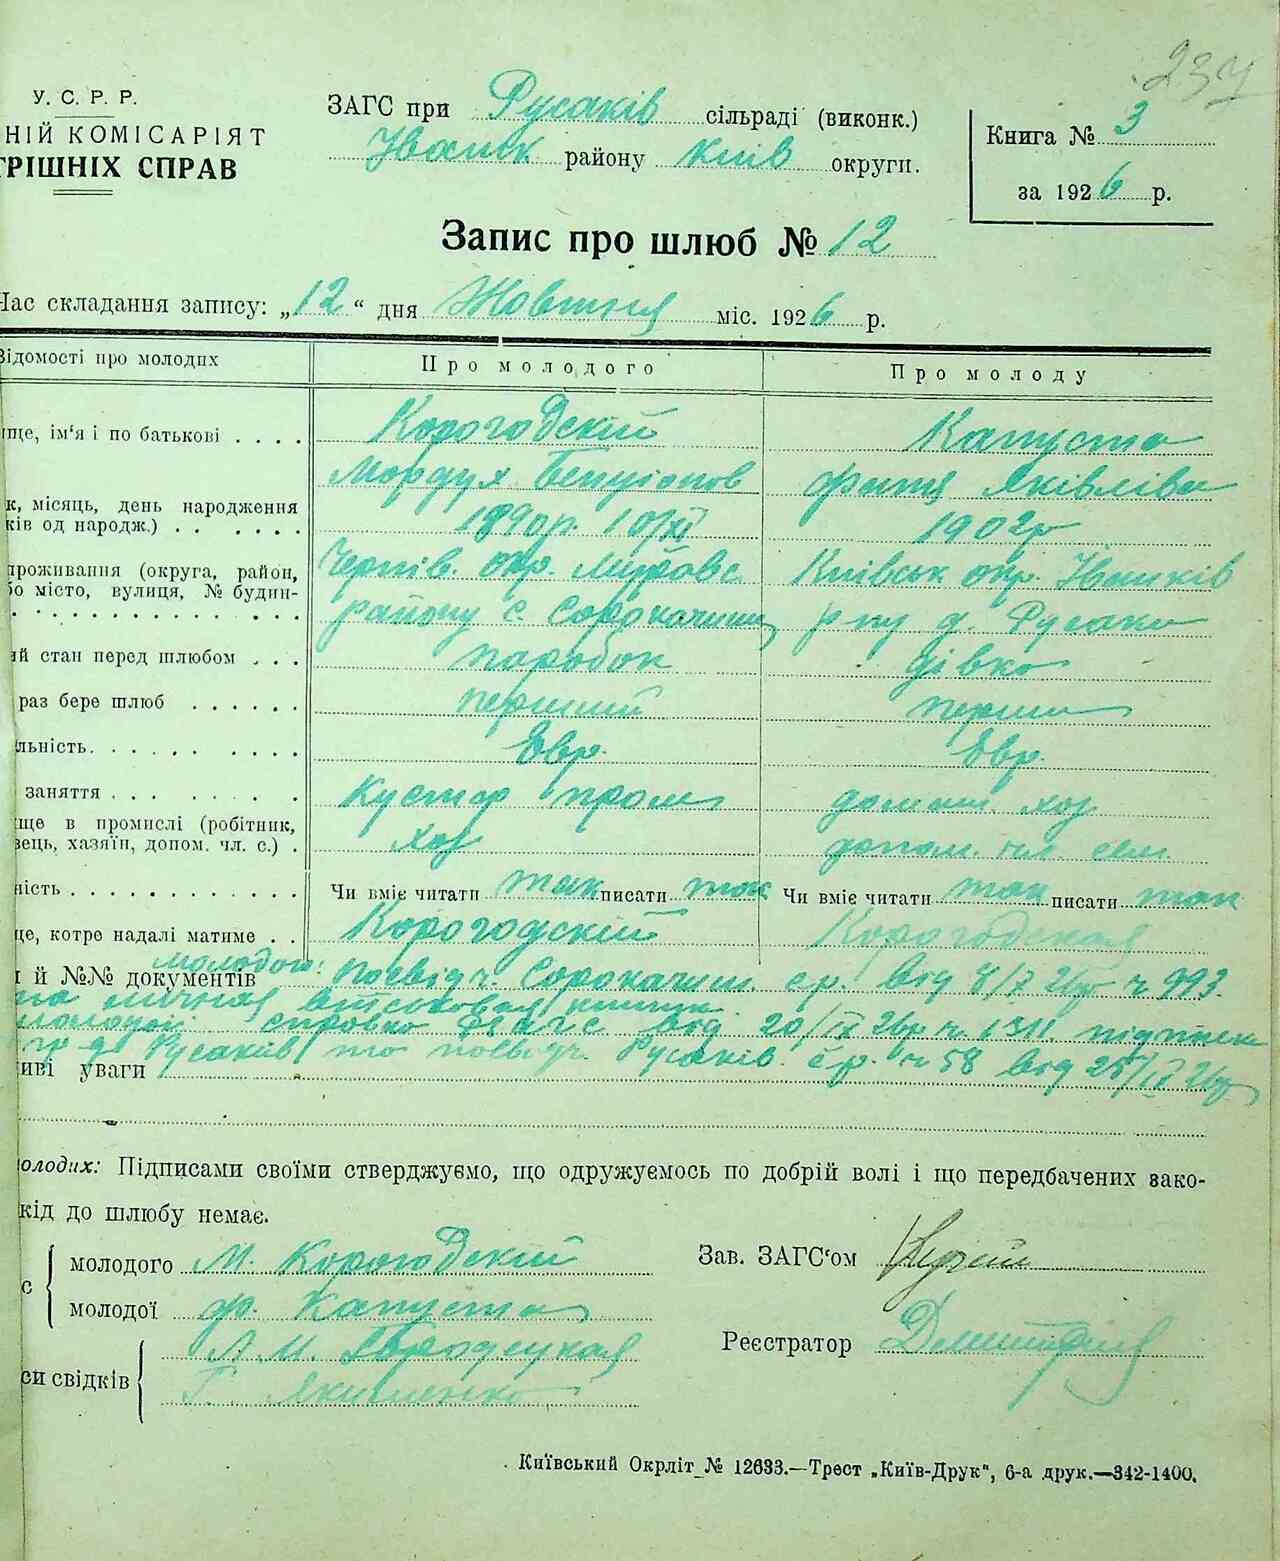 237
У. С. Р. Р.
НІЙ КОМІСАРІЯТ
ТРІШНІХ СПРАВ
ЗАГС при Русаків сільраді (виконк.)
Іванк району Київ округи.
Книга № 3
за 1926 р.
Запис про шлюб № 12
Час складання запису: „12“ дня Жовтня міс. 1926 р.
Відомості про молодих
Про молодого
Про молоду
ще, ім'я і по батькові . . . .
Корогодскій
Капуста
Мордух Бенціонов
Фаня Яківлівна
к, місяць, день народження
ків од народж.) . . . . . .
1890р. 10/XI
1902р
проживання (округа, район,
бо місто, вулиця, № будин-
Черніг. окр. району с. Сорокачиш
Київськ окр. Іванків
р-ну д. Русаки
ий стан перед шлюбом . . .
парубок
дівка
раз бере шлюб . . . . . .
перший
перший
льність. . . . . . . . . .
Євр.
Євр.
заняття . . . . . . .
Кустар пром
домаш. хоз
ще в промислі (робітник,
вець, хазяїн, допом. чл. с.) .
хоз
допом. чл. сем.
ність . . . . . . . . . . .
Чи вміє читати так писати так
Чи вміє читати так писати так
ще, котре надалі матиме . .
Корогодскій
Корогодская
й №№ документів молодого: посвідч. Сорокачиш. с.р. від 8/X 26р ч 993.
молодої справка від 20/IX 26р ч. 1311. підписк
Русаків та посвідч. Русаків. с.р. ч 58 від 25/IX 26р
иві уваги
олодих: Підписами своїми стверджуємо, що одружуємось по добрій волі і що передбачених зако-
кід до шлюбу немає.
с
молодого М. Корогодскій
молодої Ф. Капуста
Зав. ЗАГС'ом
си свідків
Г. Якименко
Реєстратор
Київський Окрліт № 12633.—Трест „Київ-Друк“, 6-а друк.—342-1400.